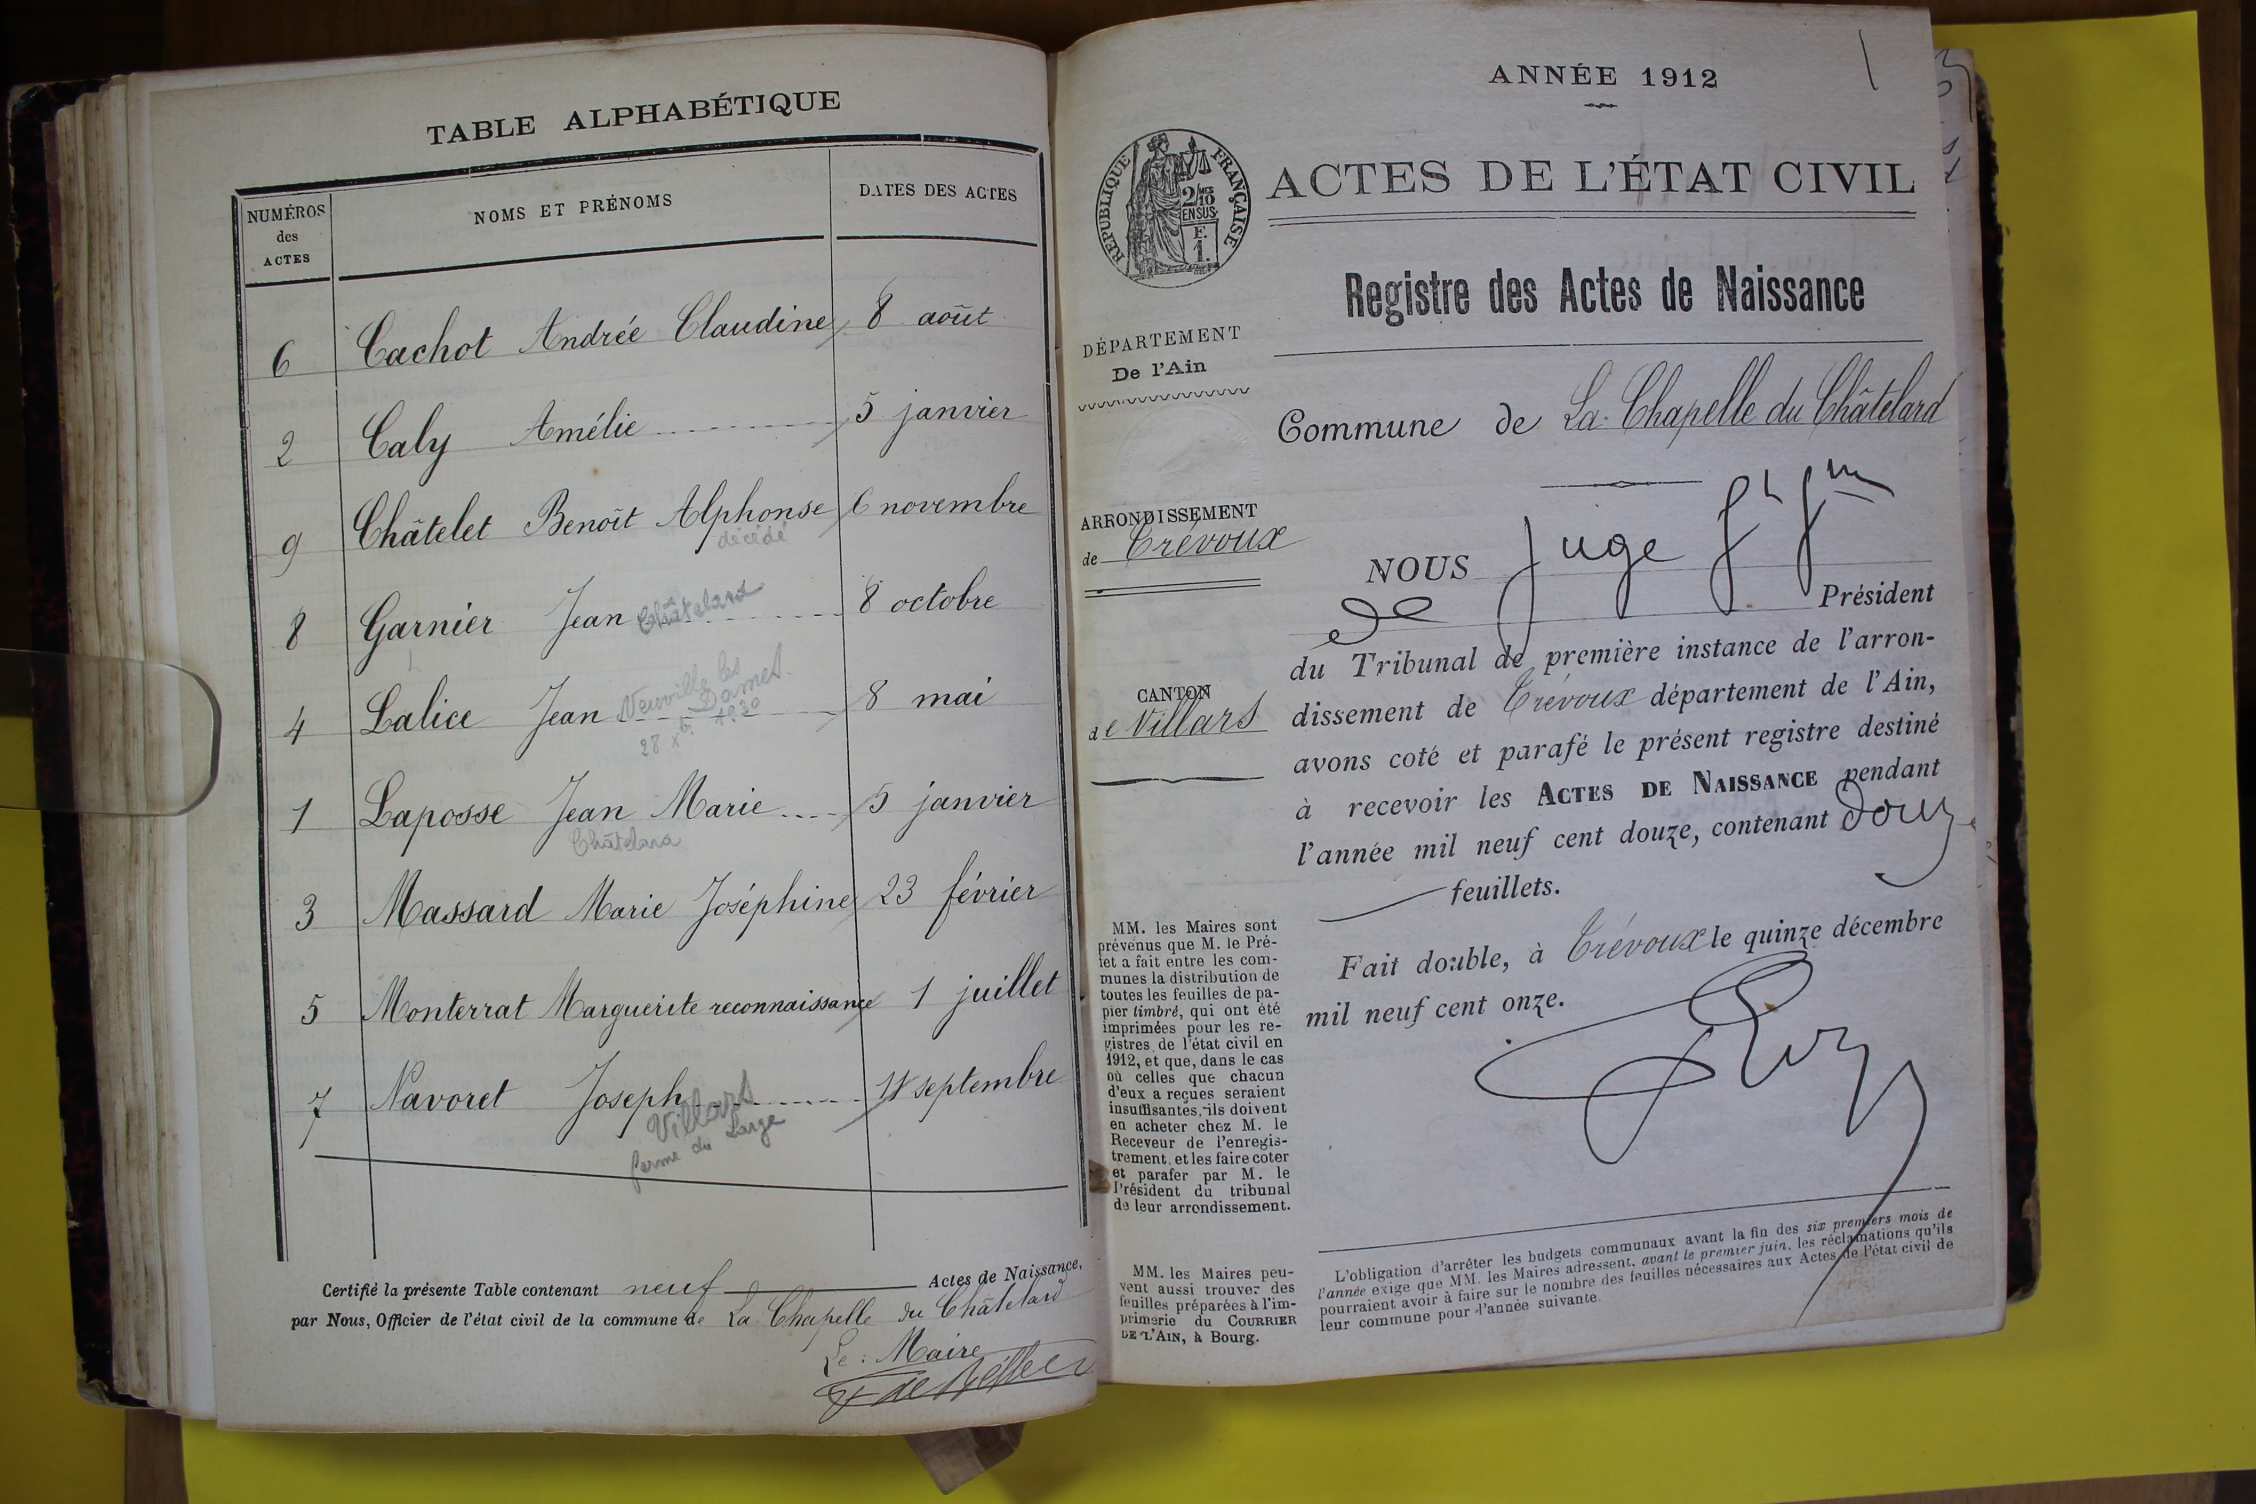 TABLE ALPHABÉTIQUE
NUMÉROS des ACTES
NOMS ET PRÉNOMS
DATES DES ACTES
6 Cachot Andrée Claudine 8 août
2 Caly Amélie 5 janvier
9 Châtelet Benoît Alphonse 6 novembre
décédé
8 Garnier Jean Châtelard 8 octobre
4 Lalice Jean Neuville les Dames 8 mai
28 xbre 1930
1 Laposse Jean Marie 5 janvier
Châtelard
3 Massard Marie Joséphine 23 février
5 Monterrat Marguerite reconnaissance 1 juillet
7 Navoret Joseph septembre
Villars
ferme du Large
Certifié la présente Table contenant neuf Actes de Naissance,
par Nous, Officier de l'état civil de la commune de La Chapelle du Châtelard
Le Maire
ANNÉE 1912
1
RÉPUBLIQUE FRANÇAISE
2/10 EN SUS
F. 1.
ACTES DE L'ÉTAT CIVIL
Registre des Actes de Naissance
DÉPARTEMENT
De l'Ain
Commune de La Chapelle du Châtelard
ARRONDISSEMENT
de Trévoux
CANTON
de Villars
NOUS juge
Président
du Tribunal de première instance de l'arron-
dissement de Trévoux département de l'Ain,
avons coté et parafé le présent registre destiné
à recevoir les ACTES DE NAISSANCE pendant
l'année mil neuf cent douze, contenant douze
feuillets.
Fait double, à Trévoux le quinze décembre
mil neuf cent onze.
MM. les Maires sont
prévenus que M. le Pré-
fet a fait entre les com-
munes la distribution de
toutes les feuilles de pa-
pier timbré, qui ont été
imprimées pour les re-
gistres de l'état civil en
1912, et que, dans le cas
où celles que chacun
d'eux a reçues seraient
insuffisantes, ils doivent
en acheter chez M. le
Receveur de l'enregis-
trement, et les faire coter
et parafer par M. le
Président du tribunal
de leur arrondissement.
MM. les Maires peu-
vent aussi trouver des
feuilles préparées à l'im-
primerie du COURRIER
DE L'AIN, à Bourg.
L'obligation d'arrêter les budgets communaux avant la fin des six premiers mois de
l'année exige que MM. les Maires adressent, avant le premier juin, les réclamations qu'ils
pourraient avoir à faire sur le nombre des feuilles nécessaires aux Actes de l'état civil de
leur commune pour l'année suivante.